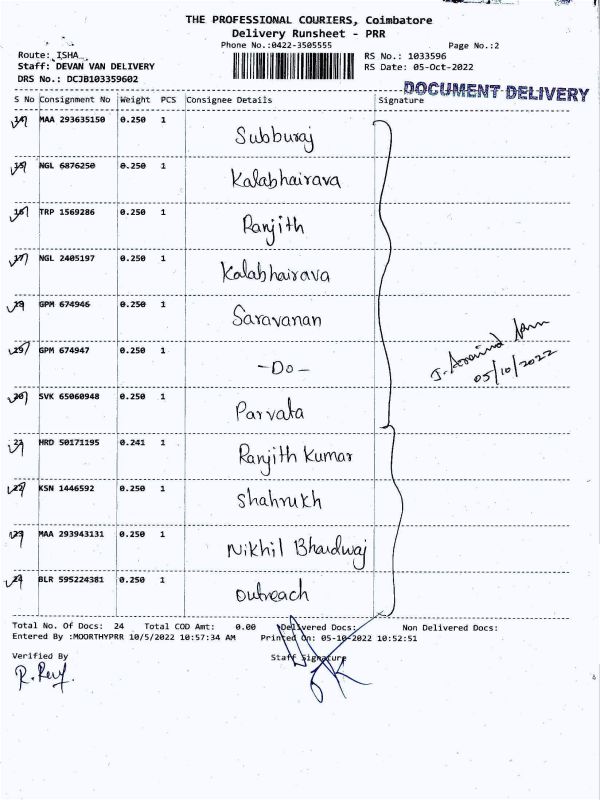 THE PROFESSIONAL COURIERS, Coimbatore
Delivery Runsheet - PRR
Phone No.:0422-3505555 Page No.:2
Route: ISHA RS No.: 1033596
Staff: DEVAN VAN DELIVERY RS Date: 05-Oct-2022
DRS No.: DCJB103359602
DOCUMENT DELIVERY
S No Consignment No Weight PCS Consignee Details Signature
14 MAA 293635150 0.250 1 Subburaj
15 NGL 6876250 0.250 1 Kalabhairava
16 TRP 1569286 0.250 1 Ranjith
17 NGL 2405197 0.250 1 Kalabhairava
18 GPM 674946 0.250 1 Saravanan
19 GPM 674947 0.250 1 -Do-
J. Aravind
05/10/2022
20 SVK 65060948 0.250 1 Parvata
21 HRD 50171195 0.241 1 Ranjith Kumar
22 KSN 1446592 0.250 1 Shahrukh
23 MAA 293943131 0.250 1 Nikhil Bhardwaj
24 BLR 595224381 0.250 1 Outreach
Total No. Of Docs: 24 Total COD Amt: 0.00 Delivered Docs: Non Delivered Docs:
Entered By :MOORTHYPRR 10/5/2022 10:57:34 AM Printed On: 05-10-2022 10:52:51
Verified By Staff Signature